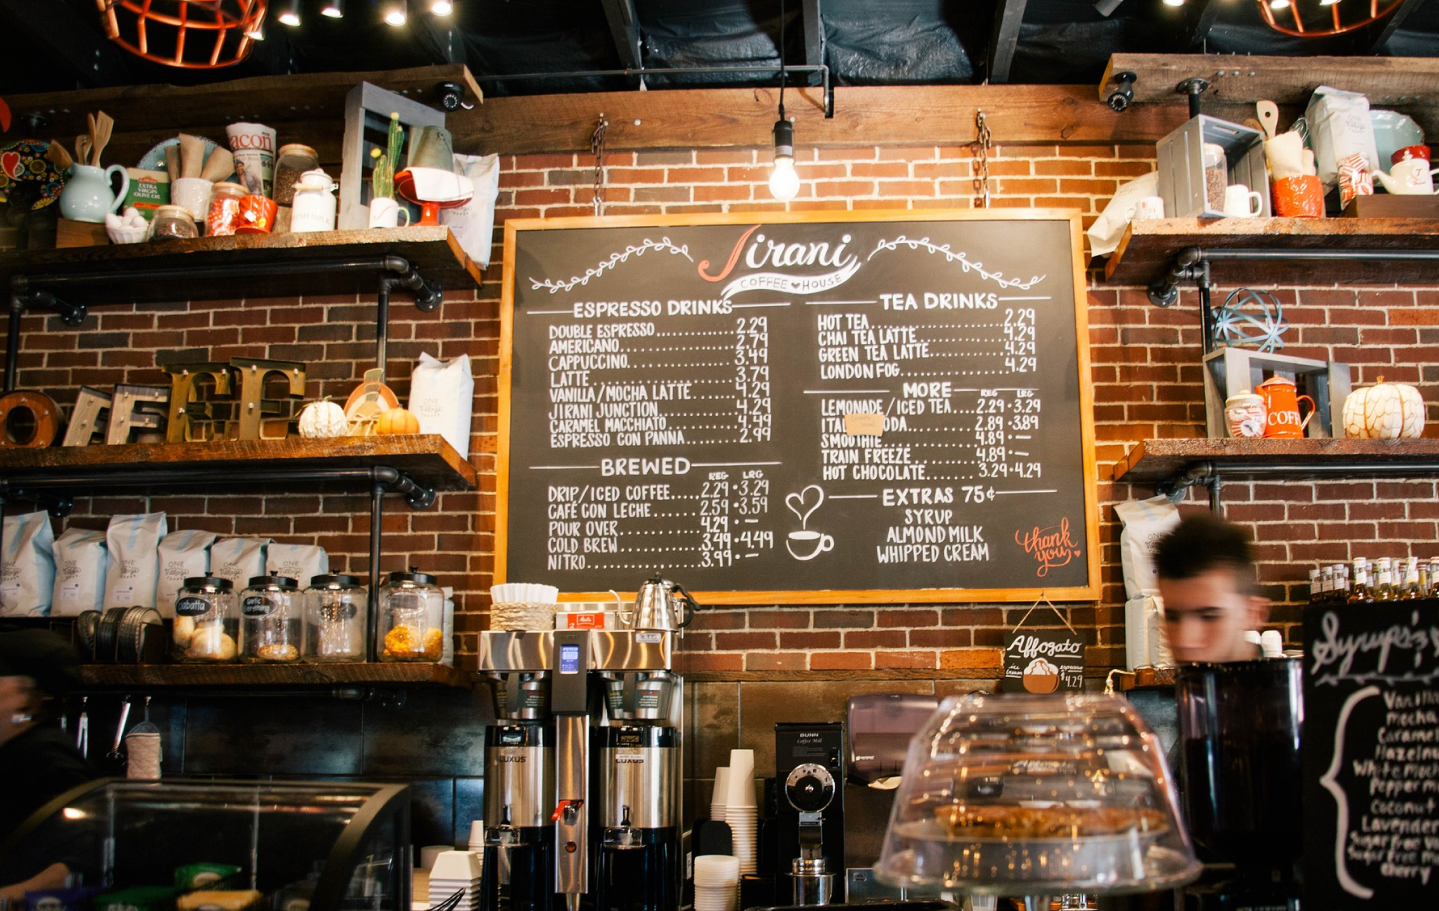 Jirani
COFFEE HOUSE
ESPRESSO DRINKS
DOUBLE ESPRESSO 2.29
AMERICANO 2.79
CAPPUCCINO 3.49
LATTE 3.79
VANILLA/MOCHA LATTE 4.29
JIRANI JUNCTION 4.29
CARAMEL MACCHIATO 4.29
ESPRESSO CON PANNA 2.99
BREWED
REG LRG
DRIP/ICED COFFEE 2.29 • 3.29
CAFÉ CON LECHE 2.59 • 3.59
POUR OVER 4.29 • —
COLD BREW 3.49 • 4.49
NITRO 3.99 • —
TEA DRINKS
HOT TEA 2.29
CHAI TEA LATTE 4.29
GREEN TEA LATTE 4.29
LONDON FOG 4.29
MORE
REG LRG
LEMONADE/ICED TEA 2.29 • 3.29
ITAL ODA 2.89 • 3.89
SMOOTHIE 4.89 • —
TRAIN FREEZE 4.89 • —
HOT CHOCOLATE 3.29 • 4.29
EXTRAS 75¢
SYRUP
ALMOND MILK
WHIPPED CREAM
thank you
acon
EXTRA VIRGIN OLIVE OIL
OFFEE
COFF
ciabatta
LUXUS
LUXUS
BUNN
Coffee Mill
Affogato
ice cream
espresso
$4.29
Syrups
Vanilla
mocha
Caramel
Hazelnu
White moch
Pepper m
Coconut
Lavender
Sugar free V
Sugar free m
cherry